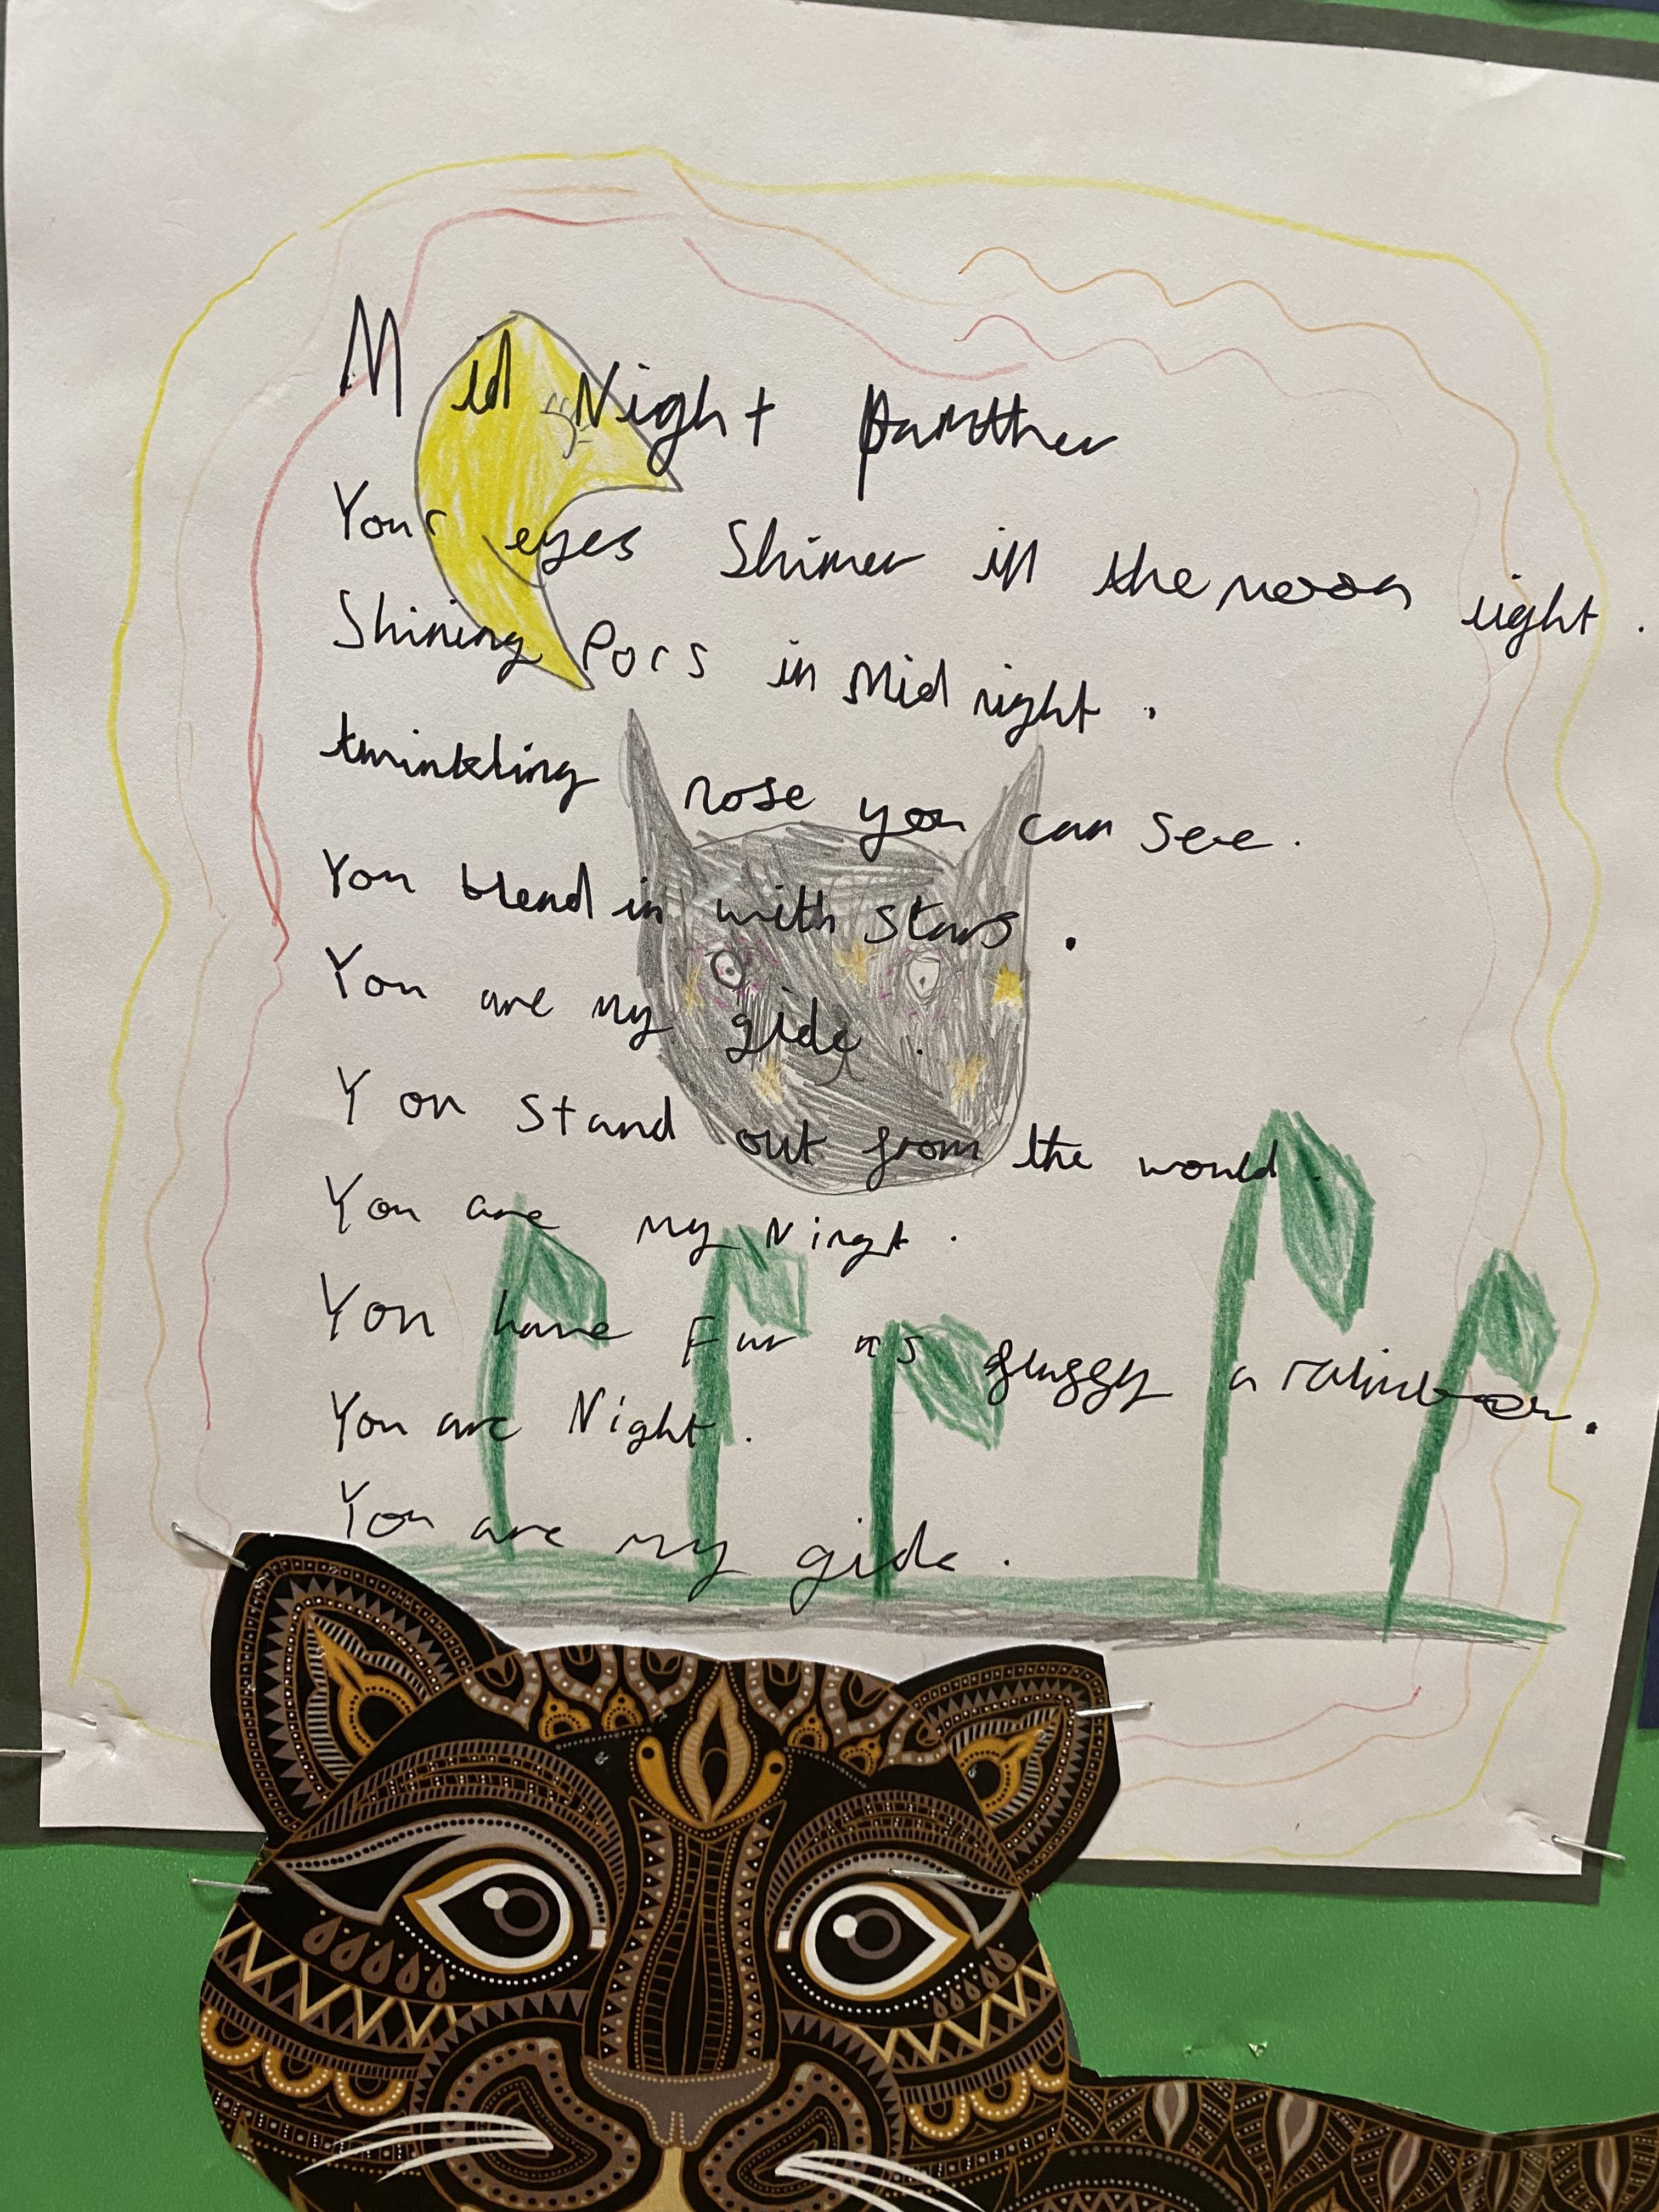 Mid Night panther
Your eyes Shimer in the moon light.
Shining Pors in Mid night.
twinkling nose you can see.
You blend in with stars.
You are my gide.
You stand out from the would.
You are my Ningt.
You have Fur as fluffy a
You are Night.
You are my gide.